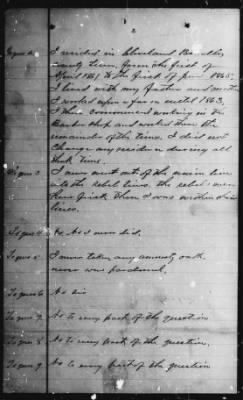 2
To ques 2 I resided in Cleveland Bradley
County Tenn from the first of
April 1861 to the first of June 1865.
I lived with my father and mother
I worked upon a farm until 1863,
I then commenced working in the
Barber shop and worked there the
remainder of the time. I did not
change my residence during all
that time.
To ques 3 I never went out of the union lines
into the rebel lines. the rebels were
here first. Then I was within their
lines.
To ques 4 No. No I never did.
To ques 5 I never taken any amnesty oath
never was pardoned.
To ques 6 No sir
To ques 7 No to every part of the question
To ques 8 No to every part of the question.
To ques 9 No to every part of the question